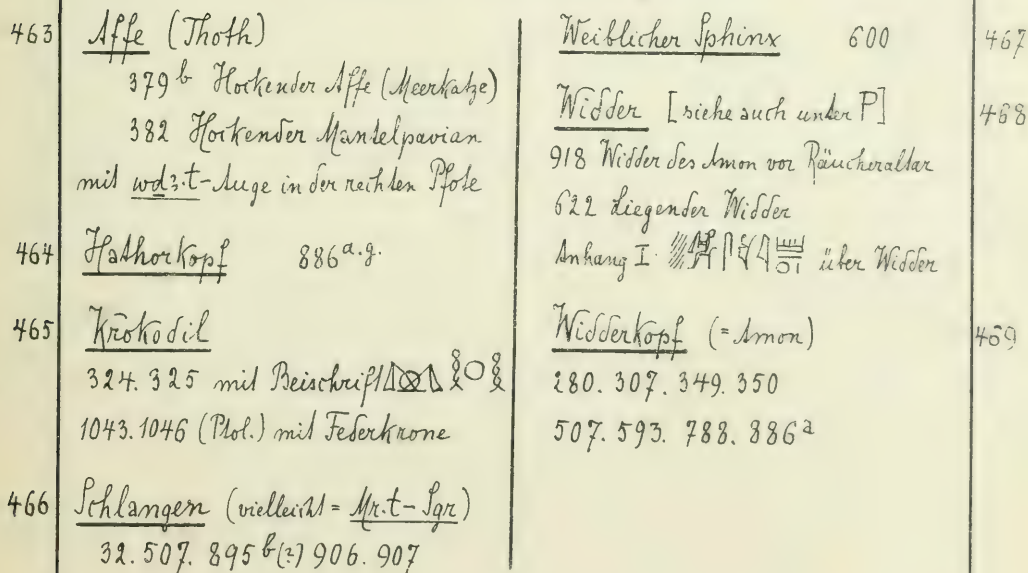 463 Affe (Thoth)
379 b Hockender Affe (Meerkatze)
382 Hockender Mantelpavian
mit wdꜣ.t-Auge in der rechten Pfote
464 Hathorkopf 886 a.g.
465 Krokodil
324. 325 mit Beischrift
1043. 1046 (Ptol.) mit Federkrone
466 Schlangen (vielleicht = Mr.t-Sgr)
32. 507. 895 b (?) 906. 907
Weiblicher Sphinx 600 467
Widder [siehe auch unter P] 468
918 Widder des Amon vor Räucheraltar
622 Liegender Widder
Anhang I über Widder
Widderkopf (= Amon) 469
280. 307. 349. 350
507. 593. 788. 886 a